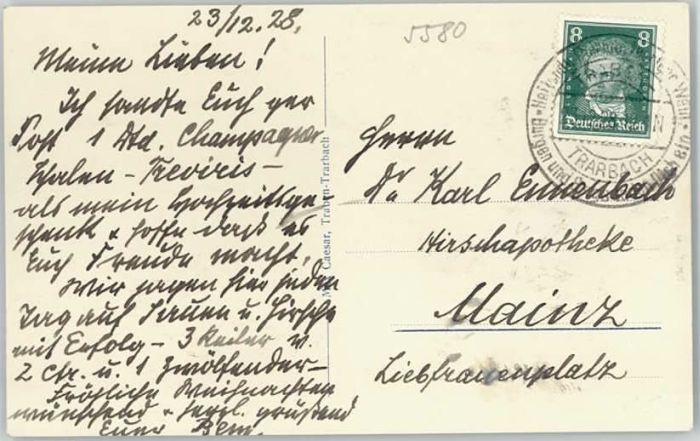 23/12.28.
5580
Meine Lieben!
Ich sandte Euch per
Post 1 Dtd. Champagner
Schalen - Treviris -
als mein Hochzeitsge-
schenk & hoffe daß es
Euch Freude macht.
Wir jagen hier jeden
Tag auf Sauen u. Hirsche
mit Erfolg - 3 Keiler v.
2 Ctr. u. 1 Zwölfender -
Fröhliche Weihnachten
wünschend & herzl. grüßend
Euer
Caesar, Traben-Trarbach
8 8
Deutsches Reich
TRARBACH
Herrn
Dr. Karl Ennenbach
Hirschapotheke
Mainz
Liebfrauenplatz